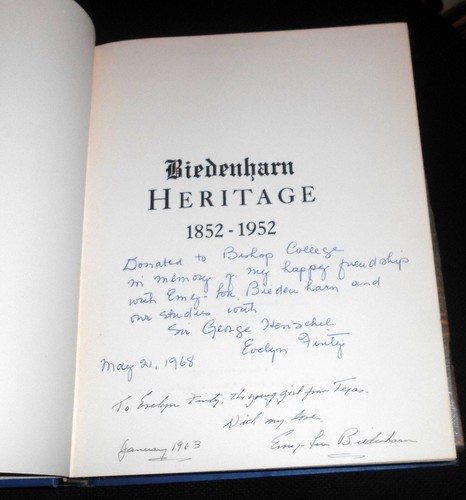 Biedenharn
HERITAGE
1852 - 1952
Donated to Bishop College
in memory of my happy friendship
with Emy-Lou Biedenharn and
our studies with
Sir George Henschel.
Evelyn Finty
May 21, 1968
To Evelyn Finty, the young girl from Texas.
With my love,
January 1963 Emy-Lou Biedenharn